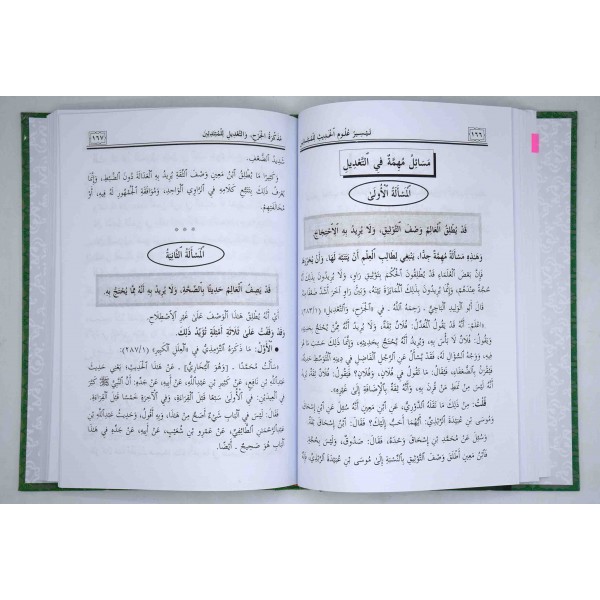 ١٦٦
تيسير علوم الحديث للمبتدئين
مسائل مهمة في التعديل
المسألة الأولى
قد يطلق العالم وصف التوثيق، ولا يريد به الاحتجاج
وهذه مسألة مهمة جدا، ينبغي لطالب العلم أن يتنبه لها، وأن
فإن بعض العلماء يطلقون الحكم بتوثيق راو، ولا يريدون
حجة عندهم، وإنما يريدون بذلك المقارنة بينه، وبين راو
قال أبو الوليد الباجي ـ رحمه الله ـ في «الجرح، والتعديل» (٢٨٣/١):
«اعلم: أنه قد يقول المعدل: فلان ثقة، ولا يريد به: أنه ممن يحتج
بحديثه، ويقول: فلان لا بأس به، ويريد: أنه يحتج بحديثه، وإنما ذلك على حسب
السؤال له، فقد يسأل عن الرجل الفاضل في دينه المتوسط
بالضعفاء، فيقال: ما تقول في فلان، وفلان؟ فيقول: فلان ثقة،
أنه ليس من نمط من قرن به، وأنه ثقة بالإضافة إلى غيره».
قلت: من ذلك ما نقله الدوري، عن ابن معين: أنه سئل عن ابن إسحاق
وموسى بن عبيدة الربذي: أيهما أحب إليك؟ فقال: ابن إسحاق ثقة
وسئل عن محمد بن إسحاق وحده، فقال: صدوق، وليس بحجة.
فابن معين أطلق وصف التوثيق بالنسبة إلى موسى بن عبيدة الربذي،
مذكرة الجرح، والتعديل للمبتدئين
١٦٧
شديد الضعف.
وكثيرا ما يطلق ابن معين وصف الثقة يريد به العدالة دون الضبط، وإنما
يعرف ذلك بتتبع كلامه في الراوي الواحد، وموافقة الجمهور له فيه، أو
مخالفتهم.
* * *
المسألة الثانية
قد يصف العالم حديثا بالصحة، ولا يريد به أنه مما يحتج به
أي أنه يطلق هذا الوصف على غير الاصطلاح.
وقد وقفت على ثلاثة أمثلة تؤيد ذلك.
● الأول: ما ذكره الترمذي في «العلل الكبير» (٢٨٧/١):
«سألت محمدا ـ [وهو البخاري] ـ عن هذا الحديث، يعني حديث
عبدالله بن نافع، عن كثير بن عبدالله، عن أبيه، عن جده: أن النبي ﷺ كبر
في العيدين: في الأولى سبعا قبل القراءة، وفي الآخرة خمسا قبل القراءة.
فقال: ليس في الباب شيء أصح من هذا، وبه أقول، وحديث عبدالله بن
عبدالرحمن الطائفي، عن عمرو بن شعيب، عن أبيه، عن جده في هذا
الباب هو صحيح ـ أيضا.